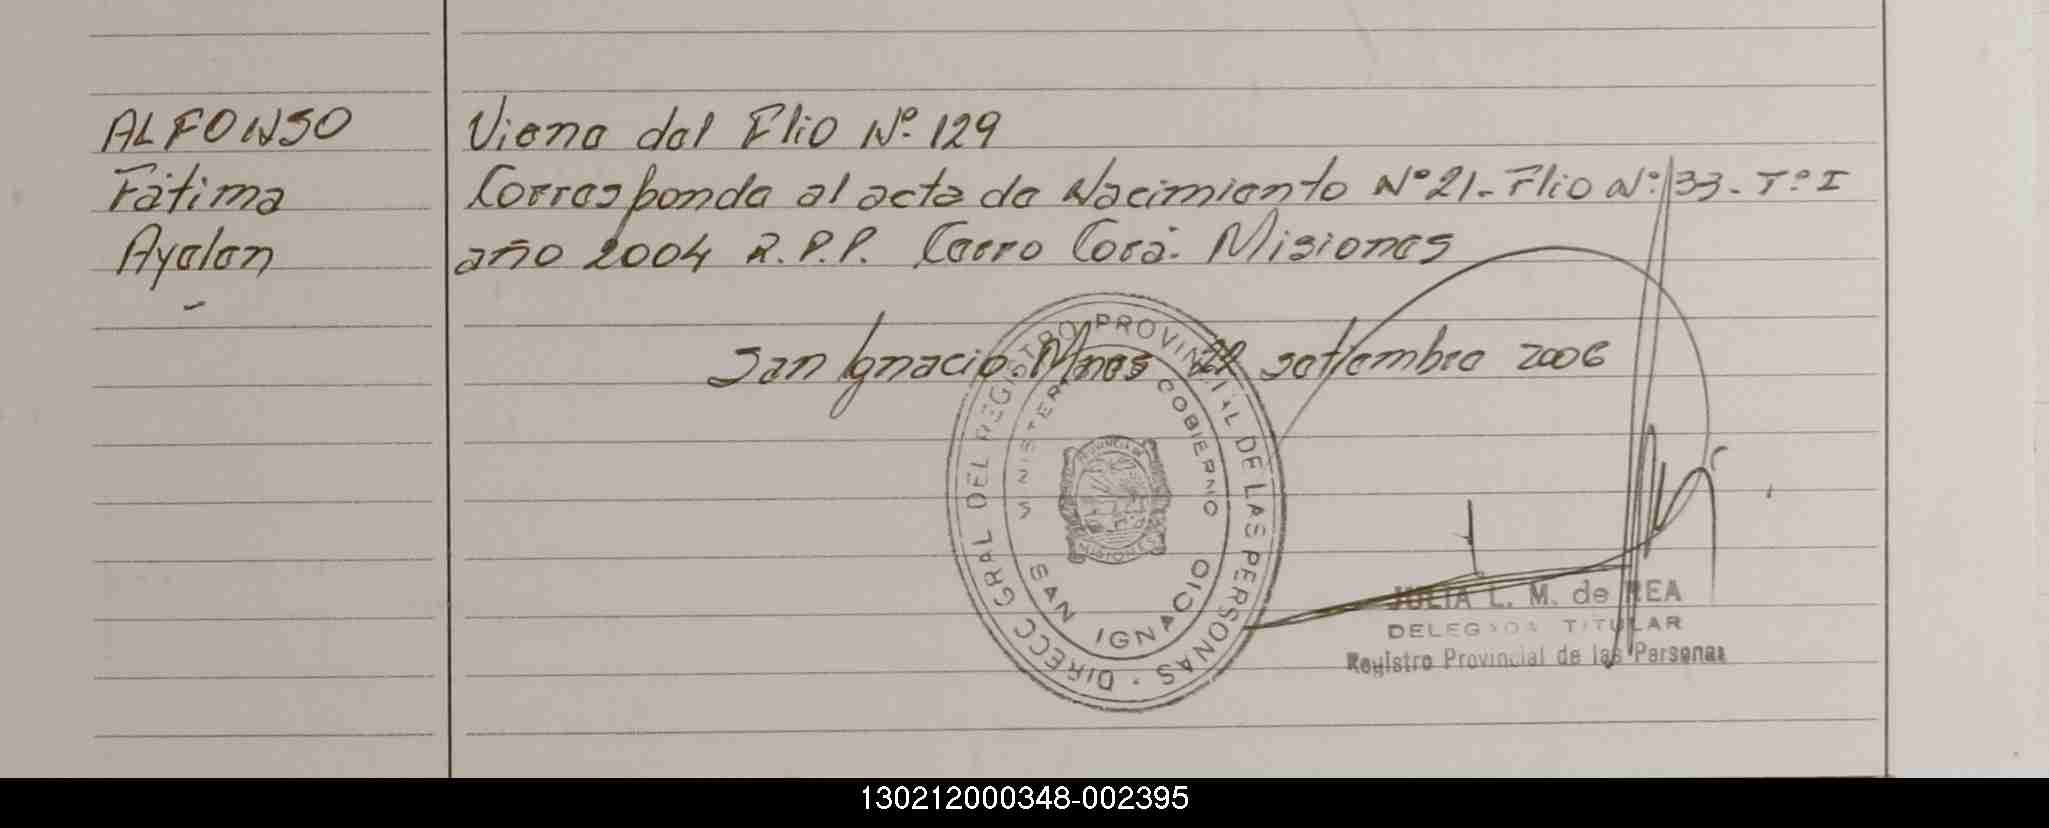 ALFONSO
Fátima
Ayelen
Viene del Flio Nº 129
Corresponde al acta de Nacimiento Nº 21- Flio Nº 33- Tº I
año 2004 R.P.P. Cerro Corá. Misiones
San Ignacio Mnes setiembre 2006
DIRECC GRAL DEL REGISTRO PROVINCIAL DE LAS PERSONAS
MINISTERIO GOBIERNO
PROVINCIA DE
MISIONES
SAN IGNACIO
JULIA L. M. de REA
DELEGADA TITULAR
Registro Provincial de las Personas
130212000348-002395